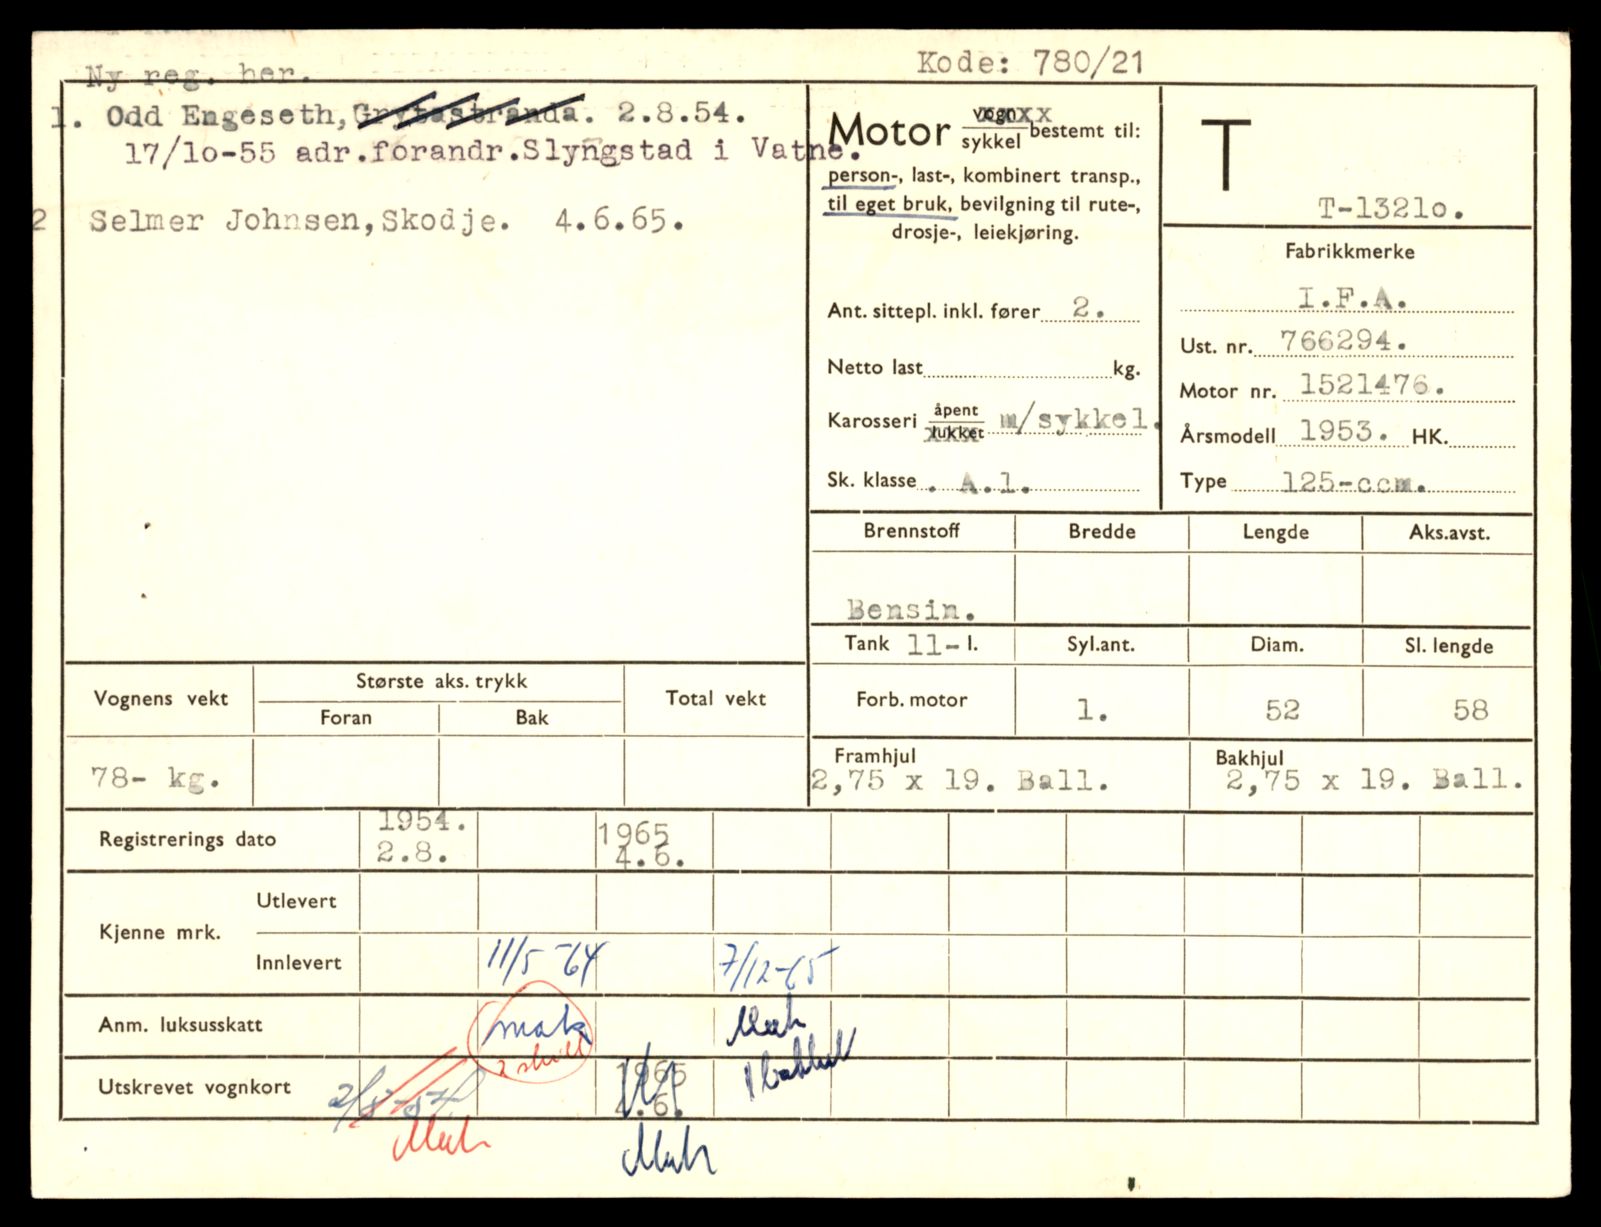 Ny reg. her.
Kode: 780/21
1. Odd Engeseth, Grytastranda. 2.8.54.
17/10-55 adr.forandr.Slyngstad i Vatne.
2 Selmer Johnsen,Skodje. 4.6.65.
Motor vogn/sykkel bestemt til:
person-, last-, kombinert transp.,
til eget bruk, bevilgning til rute-,
drosje-, leiekjøring.
Ant. sittepl. inkl. fører 2.
Netto last kg.
Karosseri åpent/lukket m/sykkel.
Sk. klasse . A.1.
T
T-13210.
Fabrikkmerke
I.F.A.
Ust. nr. 766294.
Motor nr. 1521476.
Årsmodell 1953. HK.
Type 125-ccm.
Brennstoff Bredde Lengde Aks.avst.
Bensin.
Tank 11- l. Syl.ant. Diam. Sl. lengde
Forb. motor 1. 52 58
Framhjul Bakhjul
2,75 x 19. Ball. 2,75 x 19. Ball.
Vognens vekt Største aks. trykk Total vekt
Foran Bak
78- kg.
Registrerings dato 1954. 1965
2.8. 4.6.
Kjenne mrk.
Utlevert
Innlevert 11/5-64 7/12-65
Anm. luksusskatt
Utskrevet vognkort 2/8-54 1965
4.6.